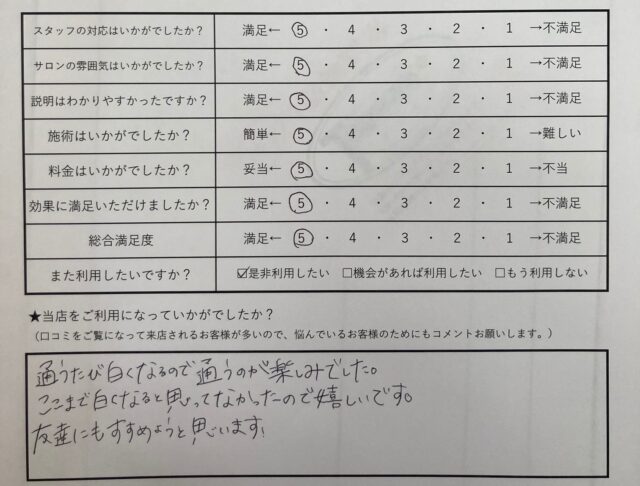 スタッフの対応はいかがでしたか？ 満足← 5 ・ 4 ・ 3 ・ 2 ・ 1 →不満足
サロンの雰囲気はいかがでしたか？ 満足← 5 ・ 4 ・ 3 ・ 2 ・ 1 →不満足
説明はわかりやすかったですか？ 満足← 5 ・ 4 ・ 3 ・ 2 ・ 1 →不満足
施術はいかがでしたか？ 簡単← 5 ・ 4 ・ 3 ・ 2 ・ 1 →難しい
料金はいかがでしたか？ 妥当← 5 ・ 4 ・ 3 ・ 2 ・ 1 →不当
効果に満足いただけましたか？ 満足← 5 ・ 4 ・ 3 ・ 2 ・ 1 →不満足
総合満足度 満足← 5 ・ 4 ・ 3 ・ 2 ・ 1 →不満足
また利用したいですか？ ☑是非利用したい □機会があれば利用したい □もう利用しない
★当店をご利用になっていかがでしたか？
（口コミをご覧になって来店されるお客様が多いので、悩んでいるお客様のためにもコメントお願いします。）
通うたび白くなるので通うのが楽しみでした。
ここまで白くなると思ってなかったので嬉しいです。
友達にもすすめようと思います!